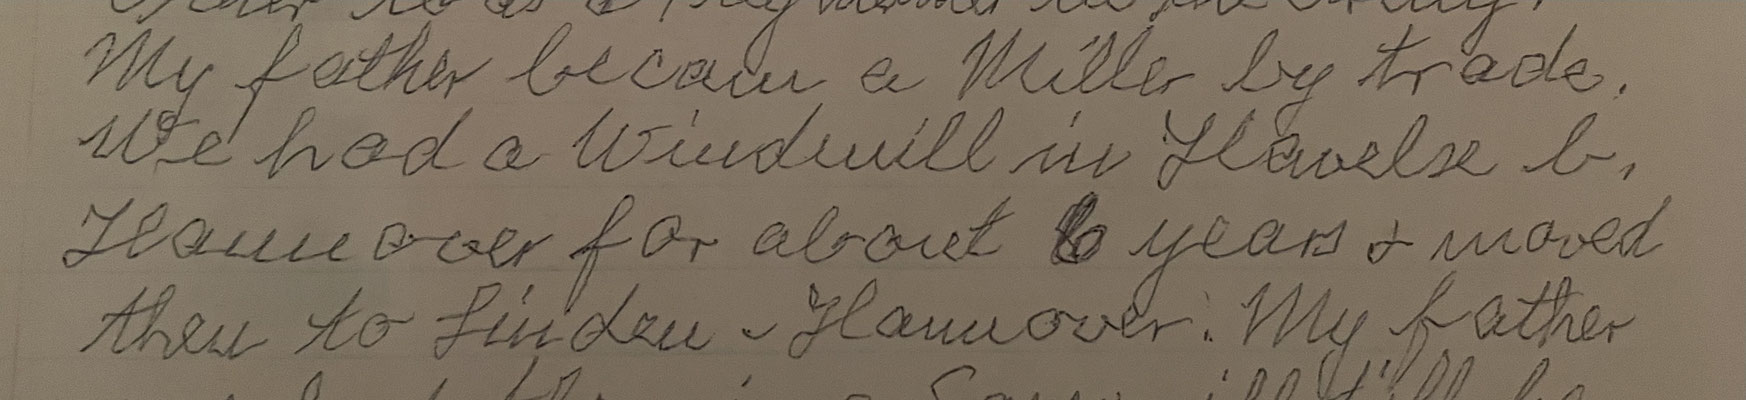 My father becam a Miller by trade.
We had a Windmill in Havelse b.
Hannover for about 6 years & moved
then to Linden - Hannover. My father